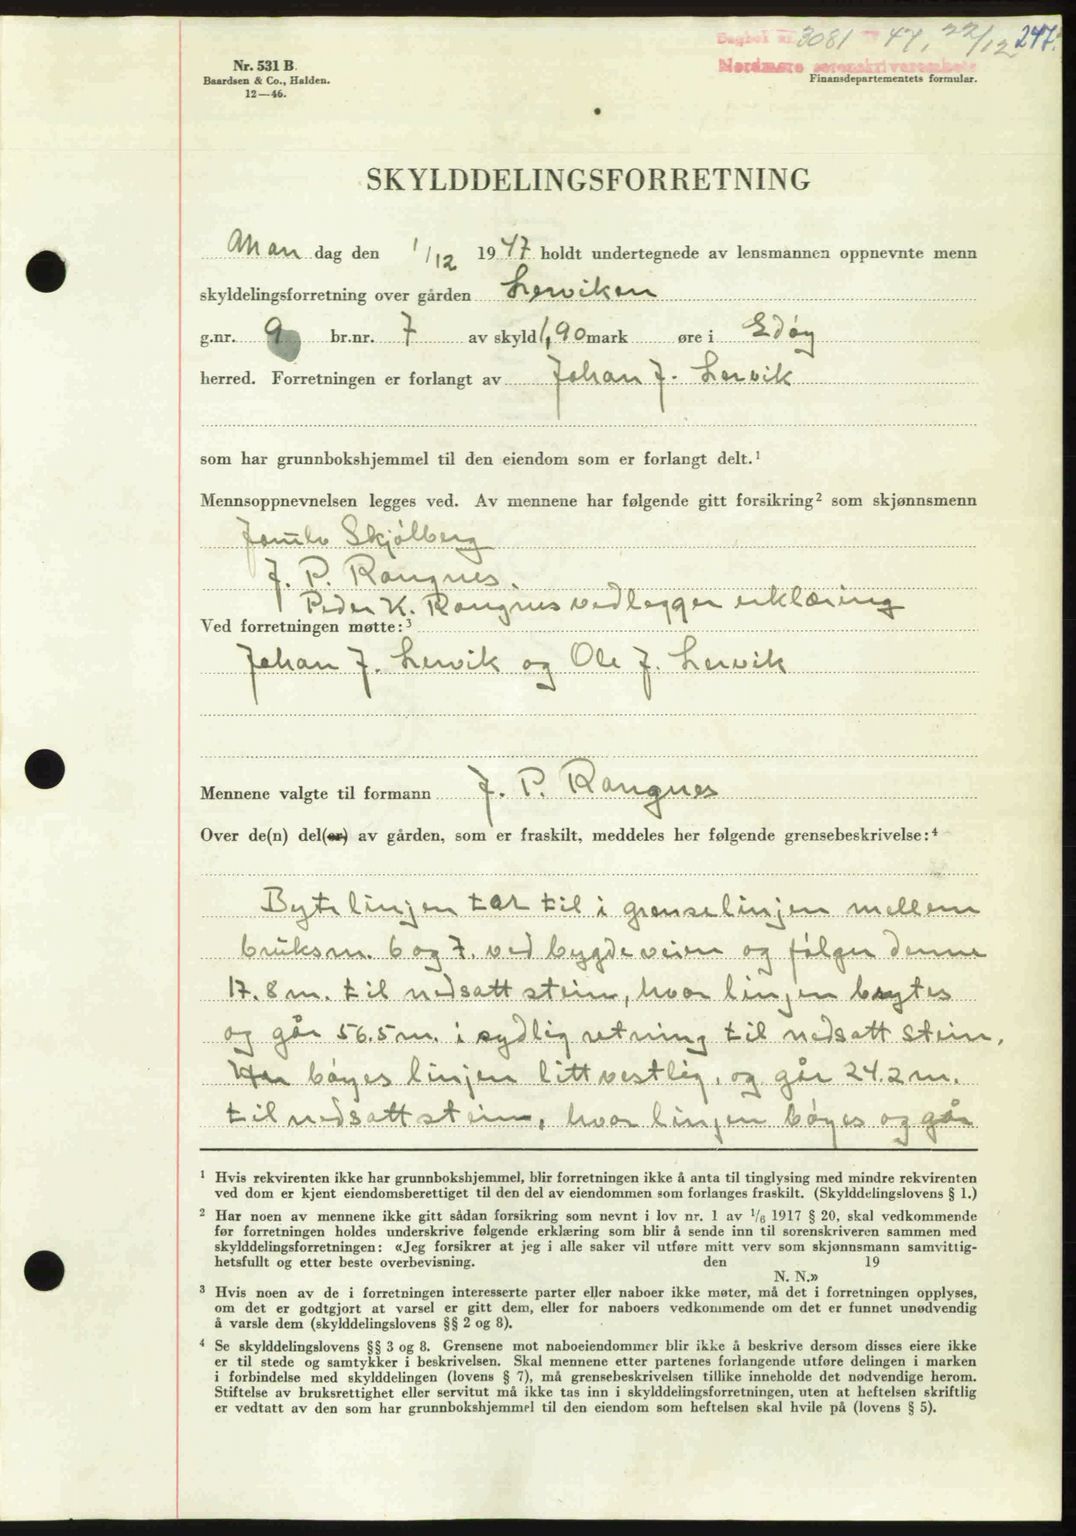 Dagbok nr. 3081 19 47, 22/12 247.
Nordmøre sorenskriverembete
Nr. 531 B.
Baardsen & Co., Halden.
12—46.
Finansdepartementets formular.
SKYLDDELINGSFORRETNING
Man dag den 1/12 1947 holdt undertegnede av lensmannen oppnevnte menn
skyldelingsforretning over gården Lerviken
g.nr. 9 br.nr. 7 av skyld 1,90 mark øre i Edøy
herred. Forretningen er forlangt av Johan J. Lervik
som har grunnbokshjemmel til den eiendom som er forlangt delt.¹
Mennsoppnevnelsen legges ved. Av mennene har følgende gitt forsikring² som skjønnsmenn
Skjølberg
J. P. Rangnes.
Peder K. Rangnes vedlegger erklæring
Ved forretningen møtte:³
Johan J. Lervik og Ole J. Lervik
Mennene valgte til formann J. P. Rangnes
Over de(n) del(er) av gården, som er fraskilt, meddeles her følgende grensebeskrivelse:⁴
Bytelinjen tar til i grenselinjen mellem
bruksnr. 6 og 7. ved bygdeveien og følger denne
17.8 m. til nedsatt stein, hvor linjen brytes
og går 56.5 m. i sydlig retning til nedsatt stein.
Her bøyes linjen litt vestlig, og går 24.2 m.
til nedsatt stein, hvor linjen bøyes og går
¹ Hvis rekvirenten ikke har grunnbokshjemmel, blir forretningen ikke å anta til tinglysing med mindre rekvirenten
ved dom er kjent eiendomsberettiget til den del av eiendommen som forlanges fraskilt. (Skylddelingslovens § 1.)
² Har noen av mennene ikke gitt sådan forsikring som nevnt i lov nr. 1 av 1/6 1917 § 20, skal vedkommende
før forretningen holdes underskrive følgende erklæring som blir å sende inn til sorenskriveren sammen med
skylddelingsforretningen: «Jeg forsikrer at jeg i alle saker vil utføre mitt verv som skjønnsmann samvittig-
hetsfullt og etter beste overbevisning. den 19
N. N.»
³ Hvis noen av de i forretningen interesserte parter eller naboer ikke møter, må det i forretningen opplyses,
om det er godtgjort at varsel er gitt dem, eller for naboers vedkommende om det er funnet unødvendig
å varsle dem (skylddelingslovens §§ 2 og 8).
⁴ Se skylddelingslovens §§ 3 og 8. Grensene mot naboeiendommer blir ikke å beskrive dersom disses eiere ikke
er til stede og samtykker i beskrivelsen. Skal mennene etter partenes forlangende utføre delingen i marken
i forbindelse med skylddelingen (lovens § 7), må grensebeskrivelsen tillike inneholde det nødvendige herom.
Stiftelse av bruksrettighet eller servitut må ikke tas inn i skylddelingsforretningen, uten at heftelsen skriftlig
er vedtatt av den som har grunnbokshjemmel til den eiendom som heftelsen skal hvile på (lovens § 5).